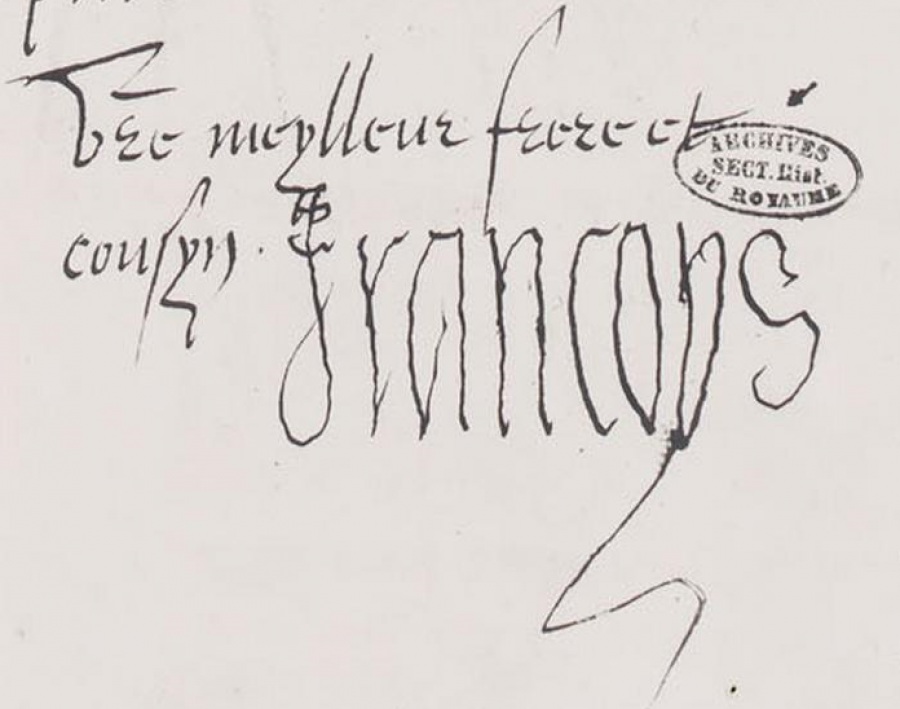 Vre meylleur frere et
ARCHIVES
SECT. Hist.
DU ROYAUME
cousyn. Francoys